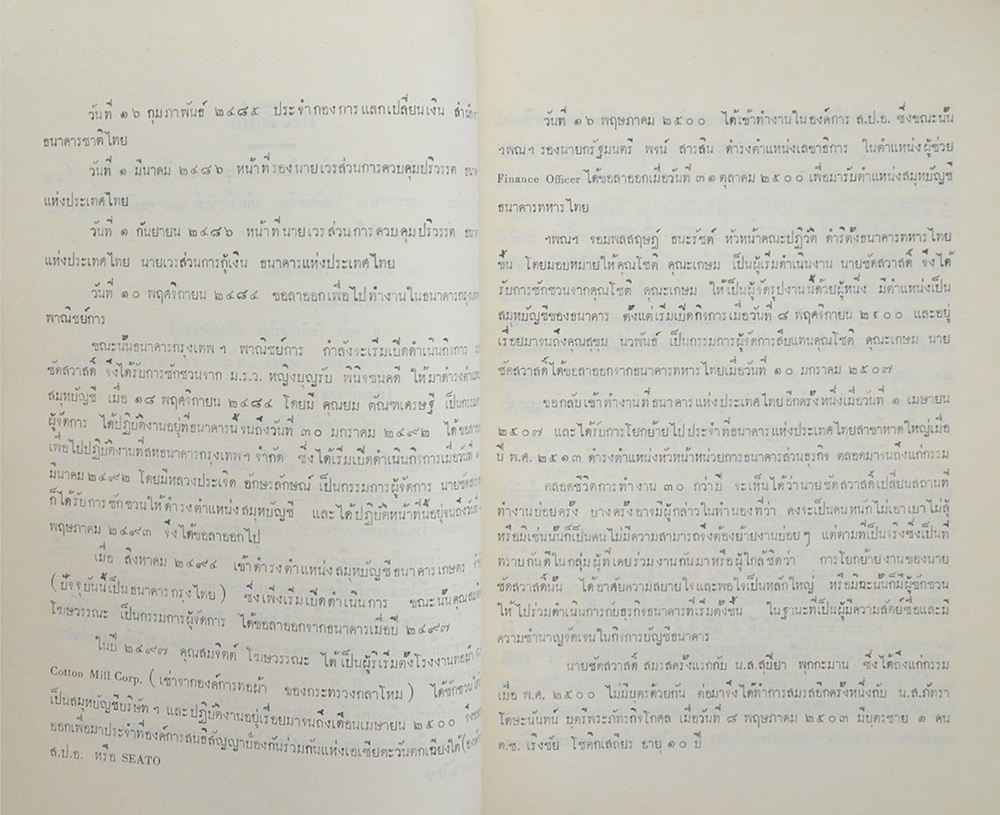 วันที่ ๑๖ กุมภาพันธ์ ๒๔๘๕ ประจำกองการแลกเปลี่ยนเงิน
ธนาคารชาติไทย
วันที่ ๑ มีนาคม ๒๔๘๖ หน้าที่รองนายเวรส่วนการควบคุมปริวรรต
แห่งประเทศไทย
วันที่ ๑ กันยายน ๒๔๘๖ หน้าที่นายเวรส่วนการควบคุมปริวรรต
แห่งประเทศไทย นายเวรส่วนการกู้เงิน ธนาคารแห่งประเทศไทย
วันที่ ๑๐ พฤศจิกายน ๒๔๘๔ ขอลาออกเพื่อไปทำงานในธนาคารกรุงเทพ
พาณิชย์การ
ขณะนั้นธนาคารกรุงเทพฯ พาณิชย์การ กำลังจะเริ่มเปิดดำเนินกิจการ
ชัดสวาสดิ์ จึงได้รับการชักชวนจาก ม.ร.ว. หญิงบุญรับ พินิจชนคดี ให้มาดำรงตำแหน่ง
สมุหบัญชี เมื่อ ๑๘ พฤศจิกายน ๒๔๘๔ โดยมี คุณยม ตัณฑเศรษฐี เป็นกรรมการ
ผู้จัดการ ได้ปฏิบัติงานอยู่ที่ธนาคารนี้จนถึงวันที่ ๓๐ มกราคม ๒๔๙๒ ได้ขอลาออก
เพื่อไปปฏิบัติงานที่สหธนาคารกรุงเทพฯ จำกัด ซึ่งได้เริ่มเปิดดำเนินกิจการเมื่อวันที่
มีนาคม ๒๔๙๒ โดยมีหลวงประเจิด อักษะลักษณ์ เป็นกรรมการผู้จัดการ นายชัดสวาสดิ์
ก็ได้รับการชักชวนให้ดำรงตำแหน่งสมุหบัญชี และได้ปฏิบัติหน้าที่นี้อยู่จนถึงวันที่
พฤษภาคม ๒๔๙๓ จึงได้ขอลาออกไป
เมื่อ สิงหาคม ๒๔๙๔ เข้าดำรงตำแหน่งสมุหบัญชีธนาคารเกษตร
(ปัจจุบันนี้เป็นธนาคารกรุงไทย) ซึ่งเพิ่งเริ่มเปิดดำเนินการ ขณะนั้นคุณสมจิตต์
โฆษวรรณะ เป็นกรรมการผู้จัดการ ได้ขอลาออกจากธนาคารเมื่อปี ๒๔๙๗
ในปี ๒๔๙๗ คุณสมจิตต์ โฆษวรรณะ ได้เป็นผู้ริเริ่มตั้งโรงงานทอผ้า
Cotton Mill Corp. (เช่าจากองค์การทอผ้า ของกระทรวงกลาโหม) ได้ชักชวนให้
เป็นสมุหบัญชีบริษัทฯ และปฏิบัติงานอยู่เรื่อยมาจนถึงเดือนเมษายน ๒๕๐๐
ออกเพื่อมาประจำที่องค์การสนธิสัญญาป้องกันร่วมกันแห่งเอเซียตะวันตกเฉียงใต้
ส.ป.อ. หรือ SEATO
วันที่ ๑๖ พฤษภาคม ๒๕๐๐ ได้เข้าทำงานในองค์การ ส.ป.อ. ซึ่งขณะนั้น
ฯพณฯ รองนายกรัฐมนตรี พจน์ สารสิน ดำรงตำแหน่งเลขาธิการ ในตำแหน่งผู้ช่วย
Finance Officer ได้ขอลาออกเมื่อวันที่ ๓๑ ตุลาคม ๒๕๐๐ เพื่อมารับตำแหน่งสมุหบัญชี
ธนาคารทหารไทย
ฯพณฯ จอมพลสฤษฎ์ ธนะรัชต์ หัวหน้าคณะปฏิวัติ ดำริตั้งธนาคารทหารไทย
ขึ้น โดยมอบหมายให้คุณโชติ คุณะเกษม เป็นผู้เริ่มดำเนินงาน นายชัดสวาสดิ์ จึงได้
รับการชักชวนจากคุณโชติ คุณะเกษม ให้เป็นผู้จัดรูปงานนี้ด้วยผู้หนึ่ง มีตำแหน่งเป็น
สมุหบัญชีของธนาคาร ตั้งแต่เริ่มเปิดกิจการเมื่อวันที่ ๘ พฤศจิกายน ๒๕๐๐ และอยู่
เรื่อยมาจนถึงคุณสุขุม นวพันธ์ เป็นกรรมการผู้จัดการสืบแทนคุณโชติ คุณะเกษม นาย
ชัดสวาสดิ์ได้ขอลาออกจากธนาคารทหารไทยเมื่อวันที่ ๑๐ มกราคม ๒๕๐๗
ขอกลับเข้าทำงานที่ธนาคารแห่งประเทศไทยอีกครั้งหนึ่งเมื่อวันที่ ๑ เมษายน
๒๕๐๗ และได้รับการโยกย้ายไปประจำที่ธนาคารแห่งประเทศไทยสาขาหาดใหญ่เมื่อ
ปี พ.ศ. ๒๕๑๓ ดำรงตำแหน่งหัวหน้าหน่วยการธนาคารส่วนธุรกิจ ตลอดมาจนถึงแก่กรรม
ตลอดชีวิตการทำงาน ๓๐ กว่าปี จะเห็นได้ว่านายชัดสวาสดิ์เปลี่ยนสถานที่
ทำงานบ่อยครั้ง บางครั้งอาจมีผู้กล่าวในทำนองที่ว่า คงจะเป็นคนหนักไม่เอาเบาไม่สู้
หรือมิเช่นนั้นก็เป็นคนไม่มีความสามารถจึงต้องย้ายงานบ่อยๆ แต่ตามที่เป็นจริงซึ่งเป็นที่
ทราบกันดีในกลุ่มผู้ที่เคยร่วมงานกันมาหรือผู้ใกล้ชิดว่า การโยกย้ายงานของนาย
ชัดสวาสดิ์นั้น ได้อาศัยความสบายใจและพอใจเป็นหลักใหญ่ หรือมิฉะนั้นก็มีผู้ชักชวน
ให้ไปร่วมดำเนินการกับธุรกิจธนาคารที่เริ่มตั้งขึ้น ในฐานะที่เป็นผู้มีความสัตย์ซื่อและมี
ความชำนาญจัดเจนในกิจการบัญชีธนาคาร
นายชัดสวาสดิ์ สมรสครั้งแรกกับ น.ส.สุขียา พุกกะมาน ซึ่งได้ถึงแก่กรรม
เมื่อ พ.ศ. ๒๕๐๐ ไม่มีบุตรด้วยกัน ต่อมาจึงได้ทำการสมรสอีกครั้งหนึ่งกับ น.ส.ภัทรา
โตษะนันทน์ บุตรีพระภัทรกิจโกศล เมื่อวันที่ ๘ พฤษภาคม ๒๕๐๓ มีบุตรชาย ๑ คน
ด.ช. เริงชัย โชติกเสถียร อายุ ๑๐ ปี